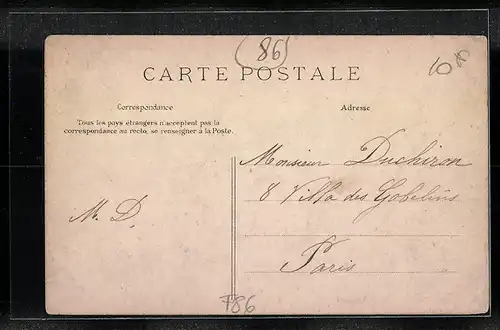 (86)
CARTE POSTALE
Correspondance
Adresse
Tous les pays étrangers n'acceptent pas la
correspondance au recto, se renseigner à la Poste.
Monsieur Duchiron
8 Villa des Gobelins
M. D.
Paris
F86